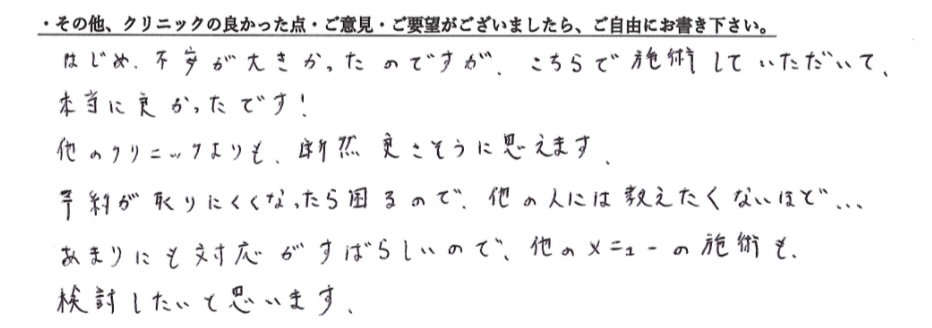 ・その他、クリニックの良かった点・ご意見・ご要望がございましたら、ご自由にお書き下さい。
はじめ、不安が大きかったのですが、こちらで施術していただいて、
本当に良かったです!
他のクリニックよりも、断然良さそうに思えます。
予約が取りにくくなったら困るので、他の人には教えたくないほど…
あまりにも対応がすばらしいので、他のメニューの施術も、
検討したいと思います。